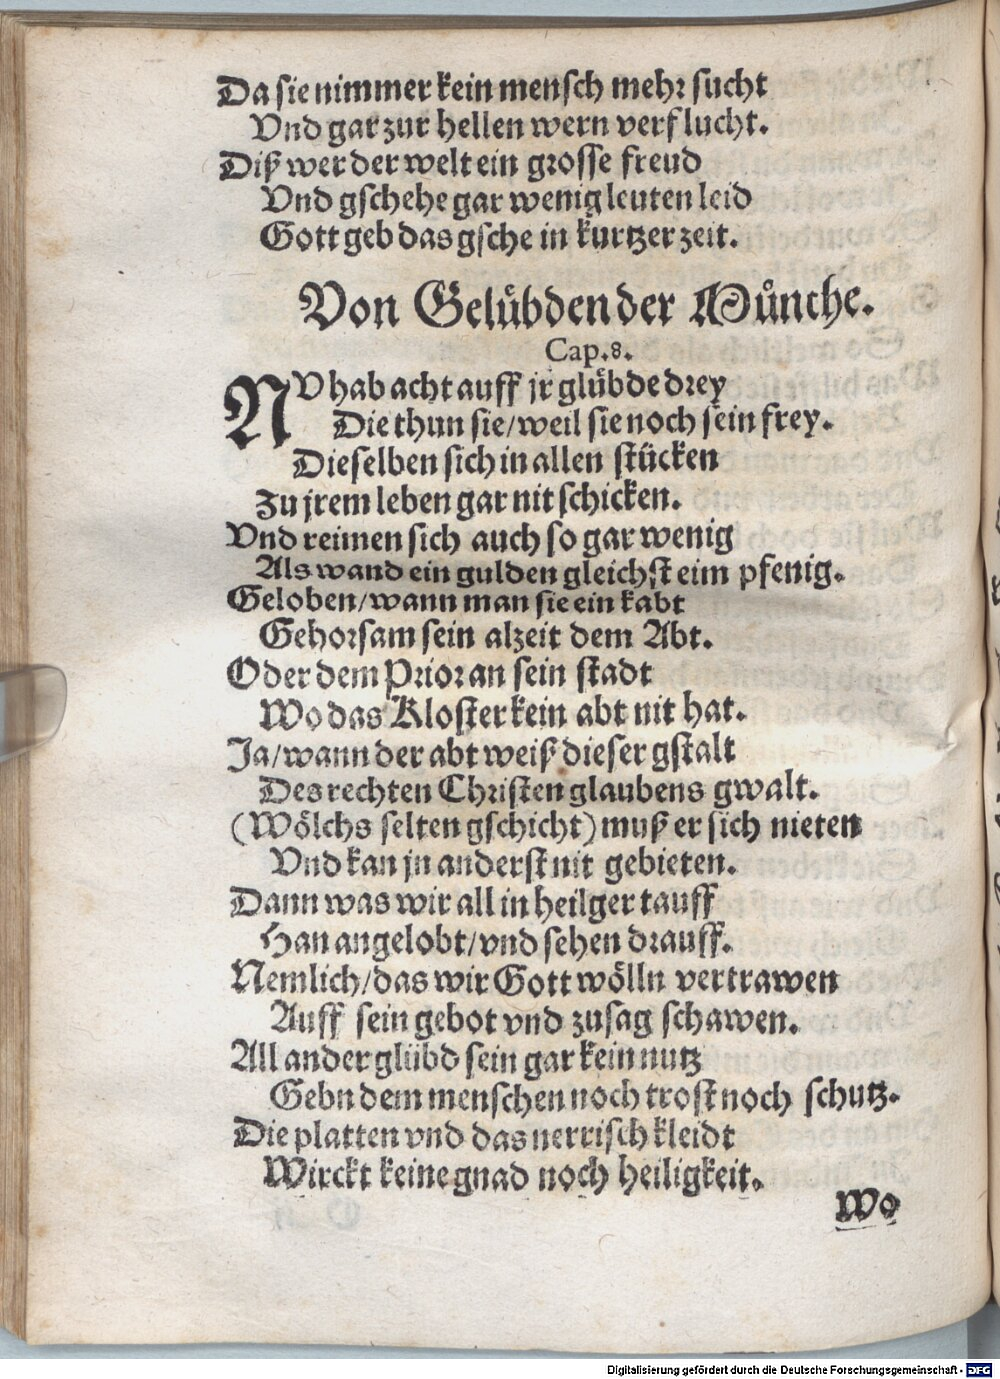 Da sie nimmer kein mensch mehr sucht
Vnd gar zur hellen wern verflucht.
Diß wer der welt ein grosse freud
Vnd gschehe gar wenig leuten leid
Gott geb das gsche in kurtzer zeit.
Von Gelübden der Münche.
Cap. 8.
NV hab acht auff jr glübde drey
Die thun sie/weil sie noch sein frey.
Dieselben sich in allen stücken
Zu jrem leben gar nit schicken.
Vnd reimen sich auch so gar wenig
Als wand ein gulden gleichst eim pfenig.
Geloben/wann man sie ein kabt
Gehorsam sein alzeit dem Abt.
Oder dem Prior an sein stadt
Wo das Kloster kein abt nit hat.
Ja/wann der abt weiß dieser gstalt
Des rechten Christen glaubens gwalt.
(Wölchs selten gschicht) muß er sich nieten
Vnd kan jn anderst nit gebieten.
Dann was wir all in heilger tauff
Han angelobt/vnd sehen drauff.
Nemlich/das wir Gott wölln vertrawen
Auff sein gebot vnd zusag schawen.
All ander glübd sein gar kein nutz
Gebn dem menschen noch trost noch schutz.
Die platten vnd das nerrisch kleidt
Wirckt keine gnad noch heiligkeit.
Wo
Digitalisierung gefördert durch die Deutsche Forschungsgemeinschaft - DFG